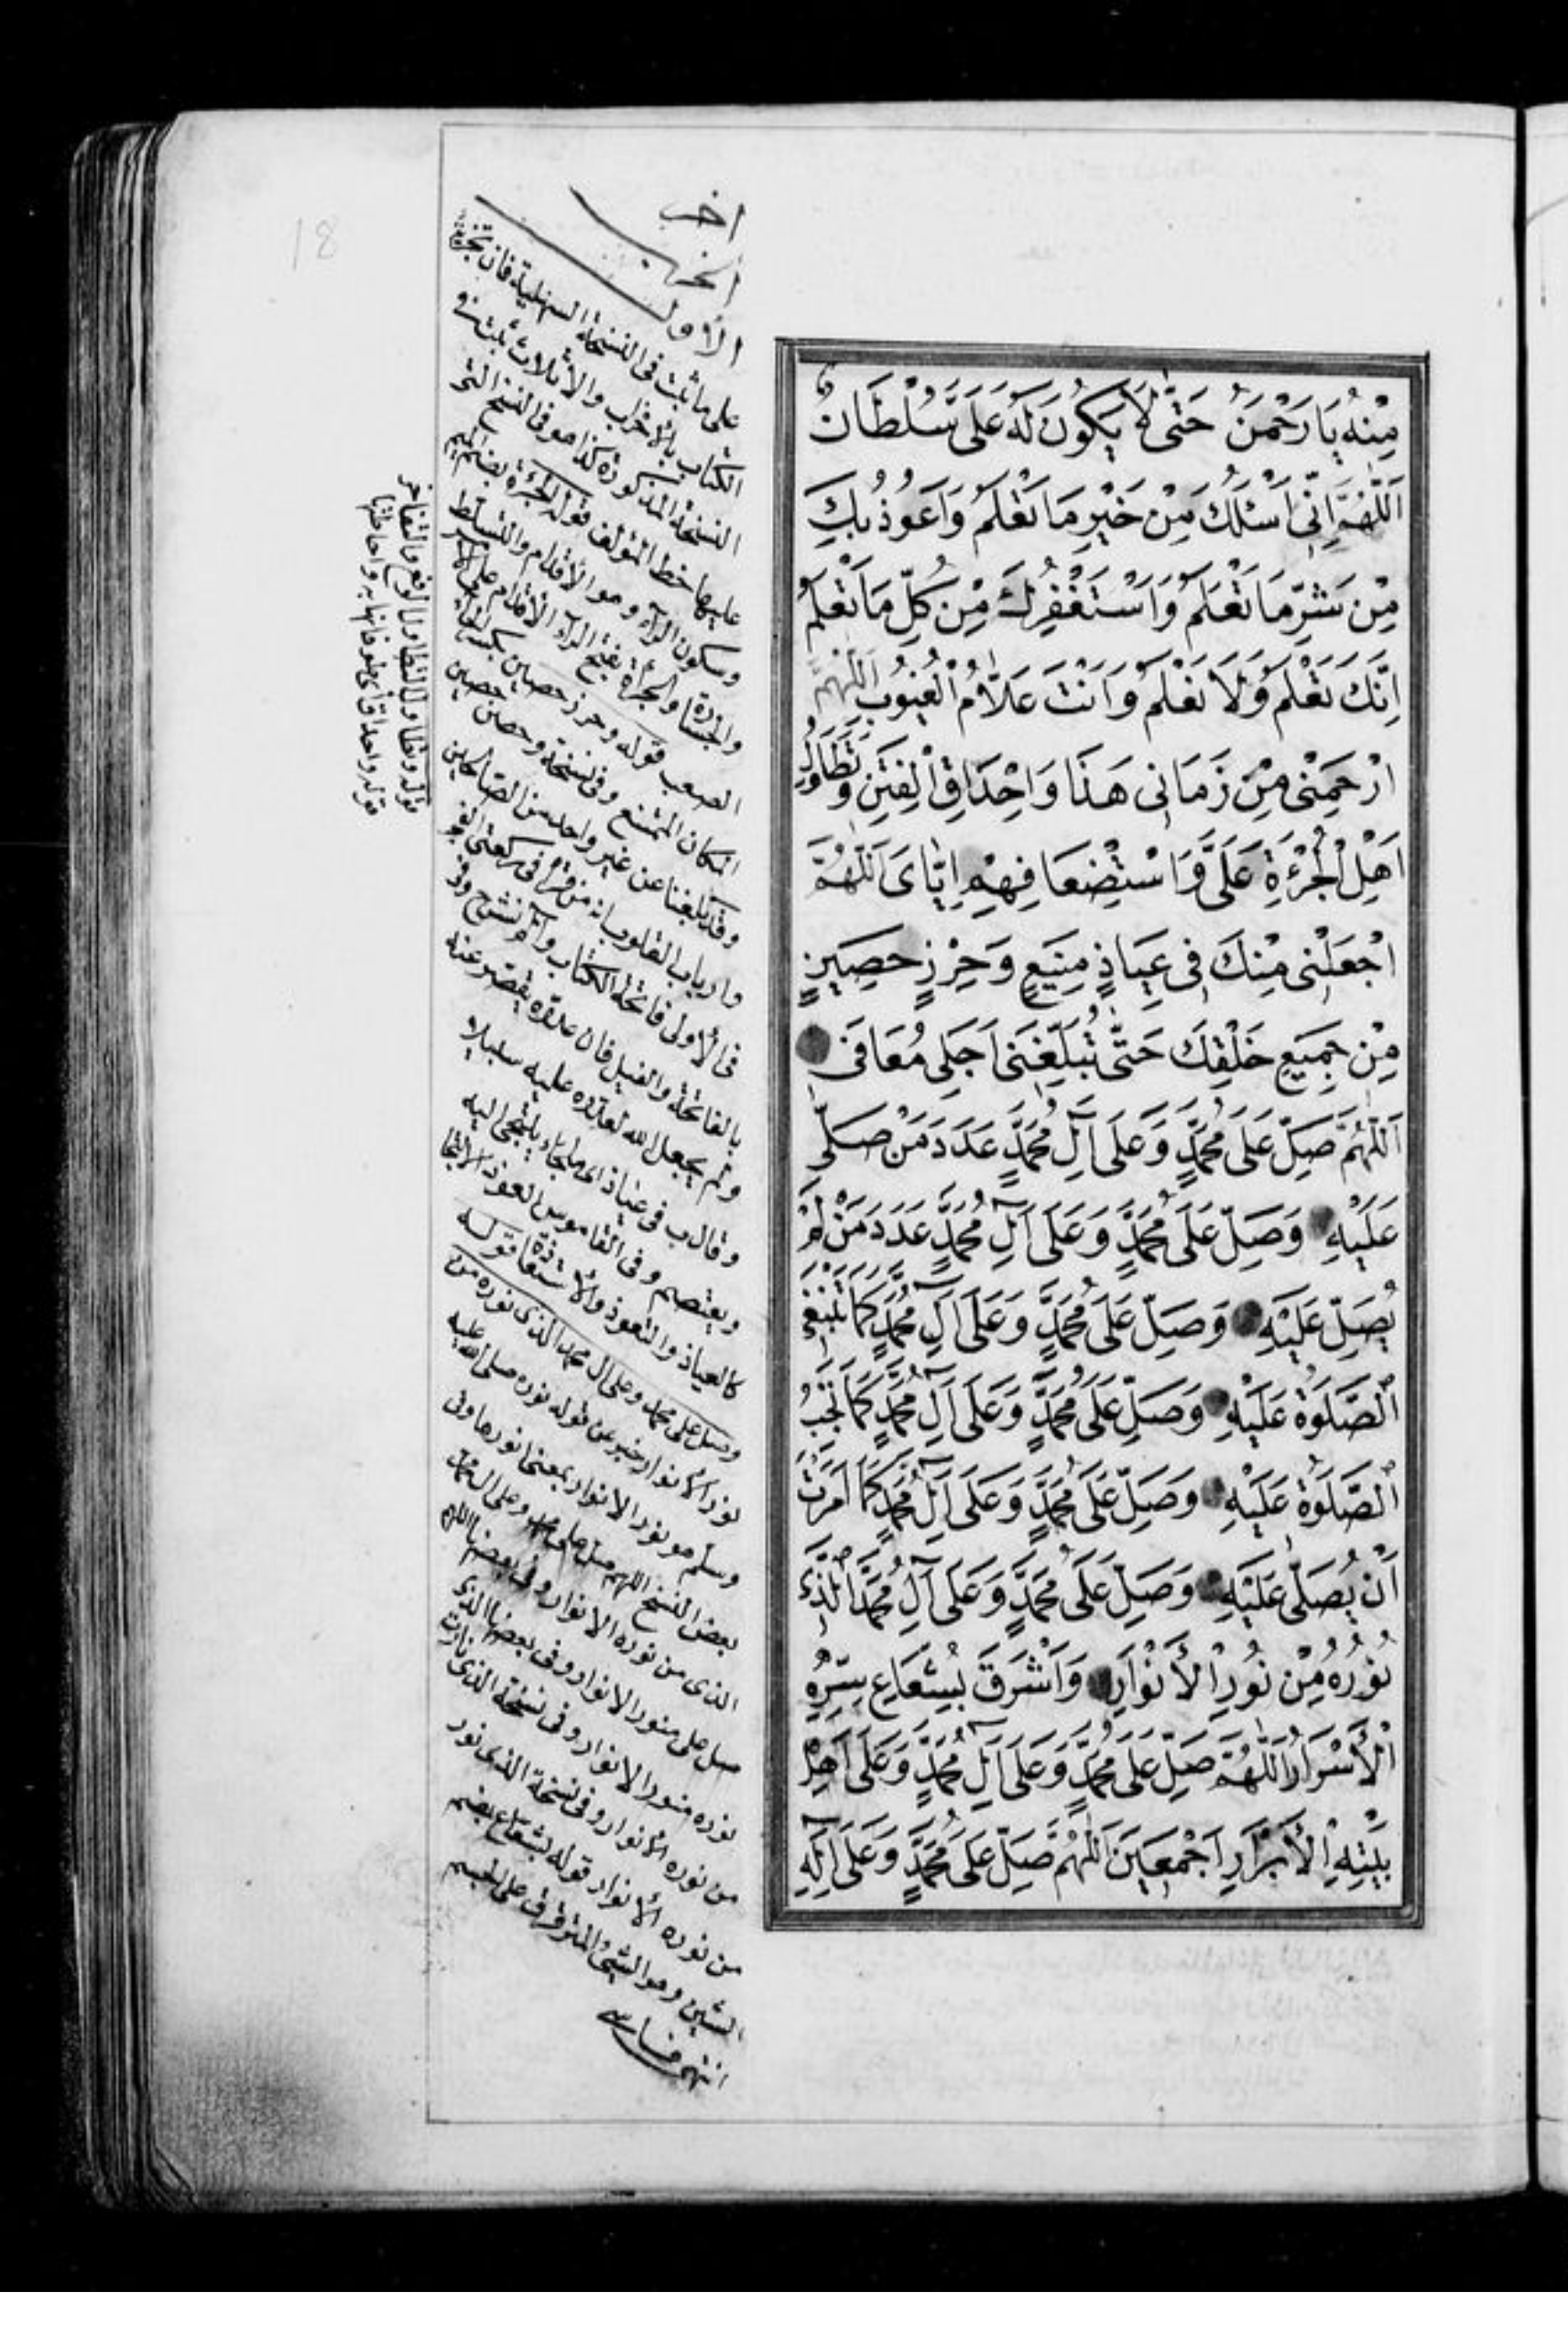 مِنْهُ يَا رَحْمٰنُ حَتّٰى لَا يَكُونَ لَهُ عَلَىَّ سُلْطَانٌ
اَللّٰهُمَّ اِنِّى اَسْئَلُكَ مِنْ خَيْرِ مَا تَعْلَمُ وَاَعُوذُ بِكَ
مِنْ شَرِّ مَا تَعْلَمُ وَاَسْتَغْفِرُكَ مِنْ كُلِّ مَا تَعْلَمُ
اِنَّكَ تَعْلَمُ وَلَا نَعْلَمُ وَاَنْتَ عَلَّامُ الْغُيُوبِ اَللّٰهُمَّ
ارْحَمْنِى مِنْ زَمَانِى هَذَا وَاِحْدَاقِ الْفِتَنِ وَتَطَاوُلِ
اَهْلِ الْجُرْءَةِ عَلَىَّ وَاسْتِضْعَافِهِمْ اِيَّاىَ اَللّٰهُمَّ
اجْعَلْنِى مِنْكَ فِى عِيَاذٍ مَنِيعٍ وَحِرْزٍ حَصِينٍ
مِنْ جَمِيعِ خَلْقِكَ حَتّٰى تُبَلِّغَنِى اَجَلِى مُعَافًى
اَللّٰهُمَّ صَلِّ عَلَى مُحَمَّدٍ وَعَلَى آلِ مُحَمَّدٍ عَدَدَ مَنْ صَلَّى
عَلَيْهِ وَصَلِّ عَلَى مُحَمَّدٍ وَعَلَى آلِ مُحَمَّدٍ عَدَدَ مَنْ لَمْ
يُصَلِّ عَلَيْهِ وَصَلِّ عَلَى مُحَمَّدٍ وَعَلَى آلِ مُحَمَّدٍ كَمَا تَنْبَغِى
الصَّلَوٰةُ عَلَيْهِ وَصَلِّ عَلَى مُحَمَّدٍ وَعَلَى آلِ مُحَمَّدٍ كَمَا تَجِبُ
الصَّلَوٰةُ عَلَيْهِ وَصَلِّ عَلَى مُحَمَّدٍ وَعَلَى آلِ مُحَمَّدٍ كَمَا اَمَرْتَ
اَنْ يُصَلَّى عَلَيْهِ وَصَلِّ عَلَى مُحَمَّدٍ وَعَلَى آلِ مُحَمَّدٍ الَّذِى
نُورُهُ مِنْ نُورِ الْأَنْوَارِ وَاَشْرَقَ بِشُعَاعِ سِرِّهِ
الْأَسْرَارُ اَللّٰهُمَّ صَلِّ عَلَى مُحَمَّدٍ وَعَلَى آلِ مُحَمَّدٍ وَعَلَى اَهْلِ
بَيْتِهِ الْأَبْرَارِ اَجْمَعِينَ اَللّٰهُمَّ صَلِّ عَلَى مُحَمَّدٍ وَعَلَى آلِهِ
الأول
على ما ثبت فى النسخة السهلية فان تجزئة
الكتاب بالأحزاب والأثلاث ثبت فى
النسخة المذكورة كذا هو فى النسخ التى
عليها خط المؤلف قوله الجرءة بضم الجيم
وسكون الراء وهو الاقدام والتسلط
الصعب قوله وحرز حصين بكسر الحاء
المكان الممتنع وفى نسخة وحصن حصين
وقد بلغنا عن غير واحد من الصالحين
وارباب القلوب انه من قرأ فى ركعتى الفجر
فى الأولى فاتحة الكتاب وألم نشرح وفى
بالفاتحة والفيل فان عدوه يقصر عنه
ولم يجعل الله لعدوه عليه سبيلا
وقال ب فى عياذ اى ملجاء يلتجى اليه
ويعتصم وفى القاموس العوذ الالتجا
كالعياذ والتعوذ والاستعاذة قوله
وصل على محمد وعلى ال محمد الذى نوره من
نور الأنوار خبر عن قوله نوره صلى الله عليه
وسلم هو نور الانوار بمعنى نورها وفى
بعض النسخ اللهم صل على محمد وعلى ال محمد
الذى من نوره الانوار وفى بعضها اللهم
صل على منور الانوار وفى بعضها الذى
نوره منور الانوار وفى نسخة الذى
من نوره الأنوار وفى نسخة الذى نور
من نوره الأنوار قوله بشعاع بضم
الشين وهو الشئ المتفرق
انتهى فاسى
18